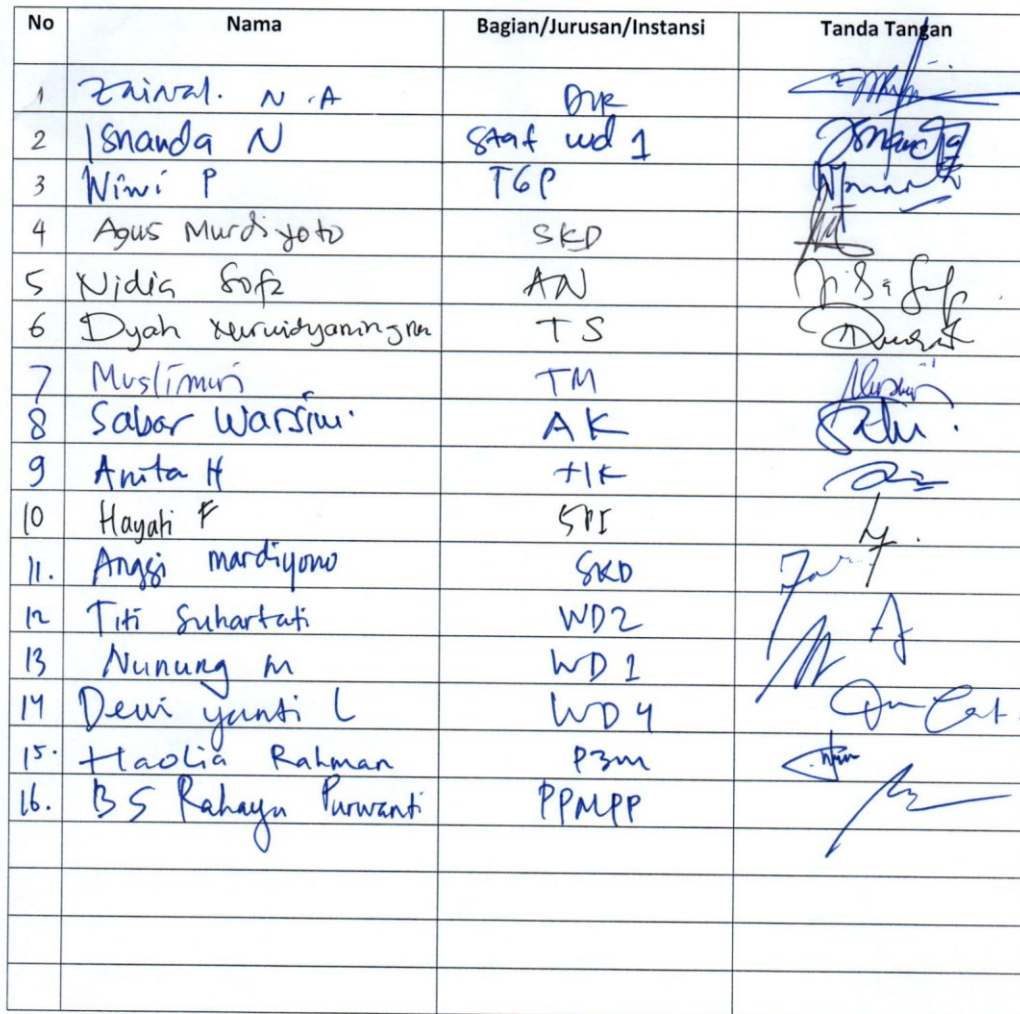 No Nama Bagian/Jurusan/Instansi Tanda Tangan
1 Zainal. N .A DIR
2 Isnanda N Staf wd 1
3 Wiwi P TGP
4 Agus Murdiyoto SKD
5 Nidia Sofa AN
6 Dyah TS
7 Muslimin TM
8 Sabar Warsini AK
9 Anita H TIK
10 Hayati F SPI
11. Anggi mardiyono SKD
12 Titi Suhartati WD2
13 Nunung M WD 1
14 Dewi yanti L WD 4
15. Haolia Rahman P3M
16. B S Rahayu Purwanti PPMPP